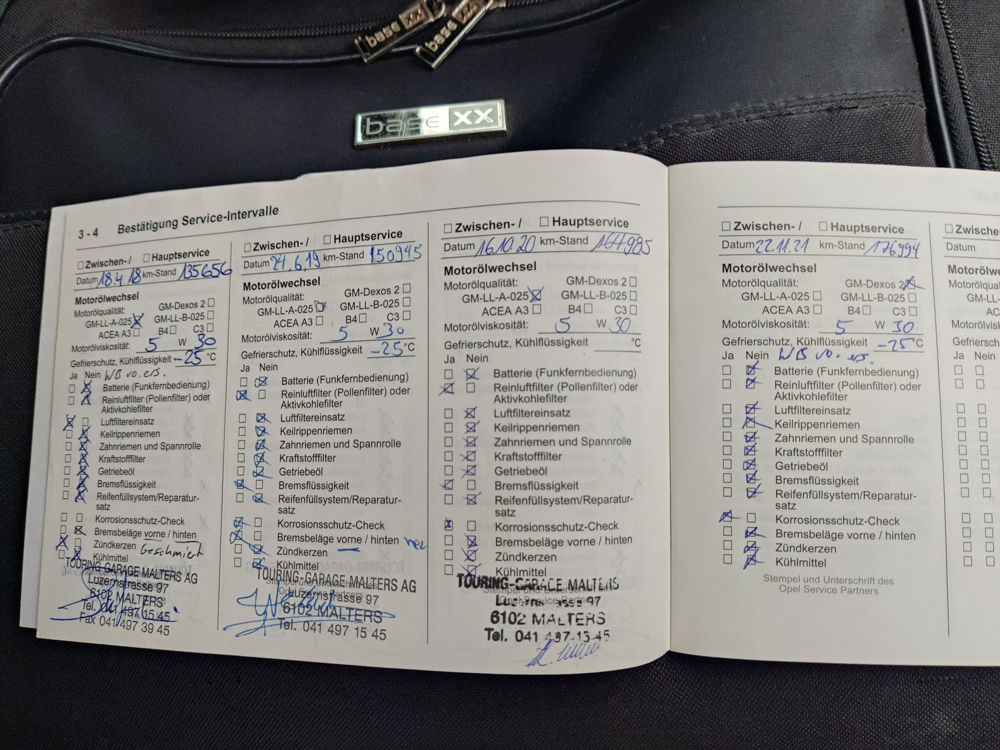 base XX
base XX
base XX
3 - 4 Bestätigung Service-Intervalle
☐ Zwischen- / ☐ Hauptservice
Datum 18.4.18 km-Stand 135656
Motorölwechsel
Motorölqualität: GM-Dexos 2 ☐
GM-LL-A-025 ☒ GM-LL-B-025 ☐
ACEA A3 ☐ B4 ☐ C3 ☐
Motorölviskosität: 5 W 30
Gefrierschutz, Kühlflüssigkeit -25 °C
Ja Nein WB vo. ers.
☐ ☒ Batterie (Funkfernbedienung)
☐ ☒ Reinluftfilter (Pollenfilter) oder
Aktivkohlefilter
☒ ☐ Luftfiltereinsatz
☐ ☒ Keilrippenriemen
☐ ☒ Zahnriemen und Spannrolle
☐ ☒ Kraftstofffilter
☐ ☒ Getriebeöl
☐ ☒ Bremsflüssigkeit
☐ ☒ Reifenfüllsystem/Reparatur-
satz
☐ ☐ Korrosionsschutz-Check
☐ ☒ Bremsbeläge vorne / hinten
☒ ☐ Zündkerzen geschmiert
☐ ☒ Kühlmittel
TOURING-GARAGE MALTERS AG
Luzernstrasse 97
6102 MALTERS
Tel. 041 497 15 45
Fax 041 497 39 45
☐ Zwischen- / ☐ Hauptservice
Datum 24.6.19 km-Stand 150945
Motorölwechsel
Motorölqualität: GM-Dexos 2 ☐
GM-LL-A-025 ☒ GM-LL-B-025 ☐
ACEA A3 ☐ B4 ☐ C3 ☐
Motorölviskosität: 5 W 30
Gefrierschutz, Kühlflüssigkeit -25 °C
Ja Nein
☐ ☒ Batterie (Funkfernbedienung)
☒ ☐ Reinluftfilter (Pollenfilter) oder
Aktivkohlefilter
☐ ☒ Luftfiltereinsatz
☐ ☒ Keilrippenriemen
☐ ☒ Zahnriemen und Spannrolle
☐ ☒ Kraftstofffilter
☐ ☒ Getriebeöl
☒ ☐ Bremsflüssigkeit
☐ ☒ Reifenfüllsystem/Reparatur-
satz
☒ ☐ Korrosionsschutz-Check
☒ ☐ Bremsbeläge vorne / hinten neu
☐ ☒ Zündkerzen
☐ ☒ Kühlmittel
TOURING-GARAGE MALTERS AG
Luzernstrasse 97
6102 MALTERS
Tel. 041 497 15 45
☐ Zwischen- / ☐ Hauptservice
Datum 16.10.20 km-Stand 164985
Motorölwechsel
Motorölqualität: GM-Dexos 2 ☐
GM-LL-A-025 ☒ GM-LL-B-025 ☐
ACEA A3 ☐ B4 ☐ C3 ☐
Motorölviskosität: 5 W 30
Gefrierschutz, Kühlflüssigkeit °C
Ja Nein
☐ ☒ Batterie (Funkfernbedienung)
☒ ☐ Reinluftfilter (Pollenfilter) oder
Aktivkohlefilter
☐ ☒ Luftfiltereinsatz
☐ ☒ Keilrippenriemen
☐ ☒ Zahnriemen und Spannrolle
☐ ☒ Kraftstofffilter
☐ ☒ Getriebeöl
☒ ☐ Bremsflüssigkeit
☐ ☒ Reifenfüllsystem/Reparatur-
satz
☒ ☐ Korrosionsschutz-Check
☐ ☒ Bremsbeläge vorne / hinten
☐ ☒ Zündkerzen
☐ ☒ Kühlmittel
TOURING-GARAGE MALTERS
6102 MALTERS
Tel. 041 497 15 45
☐ Zwischen- / ☐ Hauptservice
Datum 22.11.21 km-Stand 176994
Motorölwechsel
Motorölqualität: GM-Dexos 2 ☒
GM-LL-A-025 ☐ GM-LL-B-025 ☐
ACEA A3 ☐ B4 ☐ C3 ☐
Motorölviskosität: 5 W 30
Gefrierschutz, Kühlflüssigkeit -25 °C
Ja Nein WB vo. ers.
☐ ☒ Batterie (Funkfernbedienung)
☐ ☒ Reinluftfilter (Pollenfilter) oder
Aktivkohlefilter
☐ ☒ Luftfiltereinsatz
☐ ☒ Keilrippenriemen
☐ ☒ Zahnriemen und Spannrolle
☐ ☒ Kraftstofffilter
☐ ☒ Getriebeöl
☐ ☒ Bremsflüssigkeit
☐ ☒ Reifenfüllsystem/Reparatur-
satz
☒ ☐ Korrosionsschutz-Check
☐ ☒ Bremsbeläge vorne / hinten
☐ ☒ Zündkerzen
☐ ☒ Kühlmittel
Stempel und Unterschrift des
Opel Service Partners
☐ Zwischen-
Datum
Ja Nein